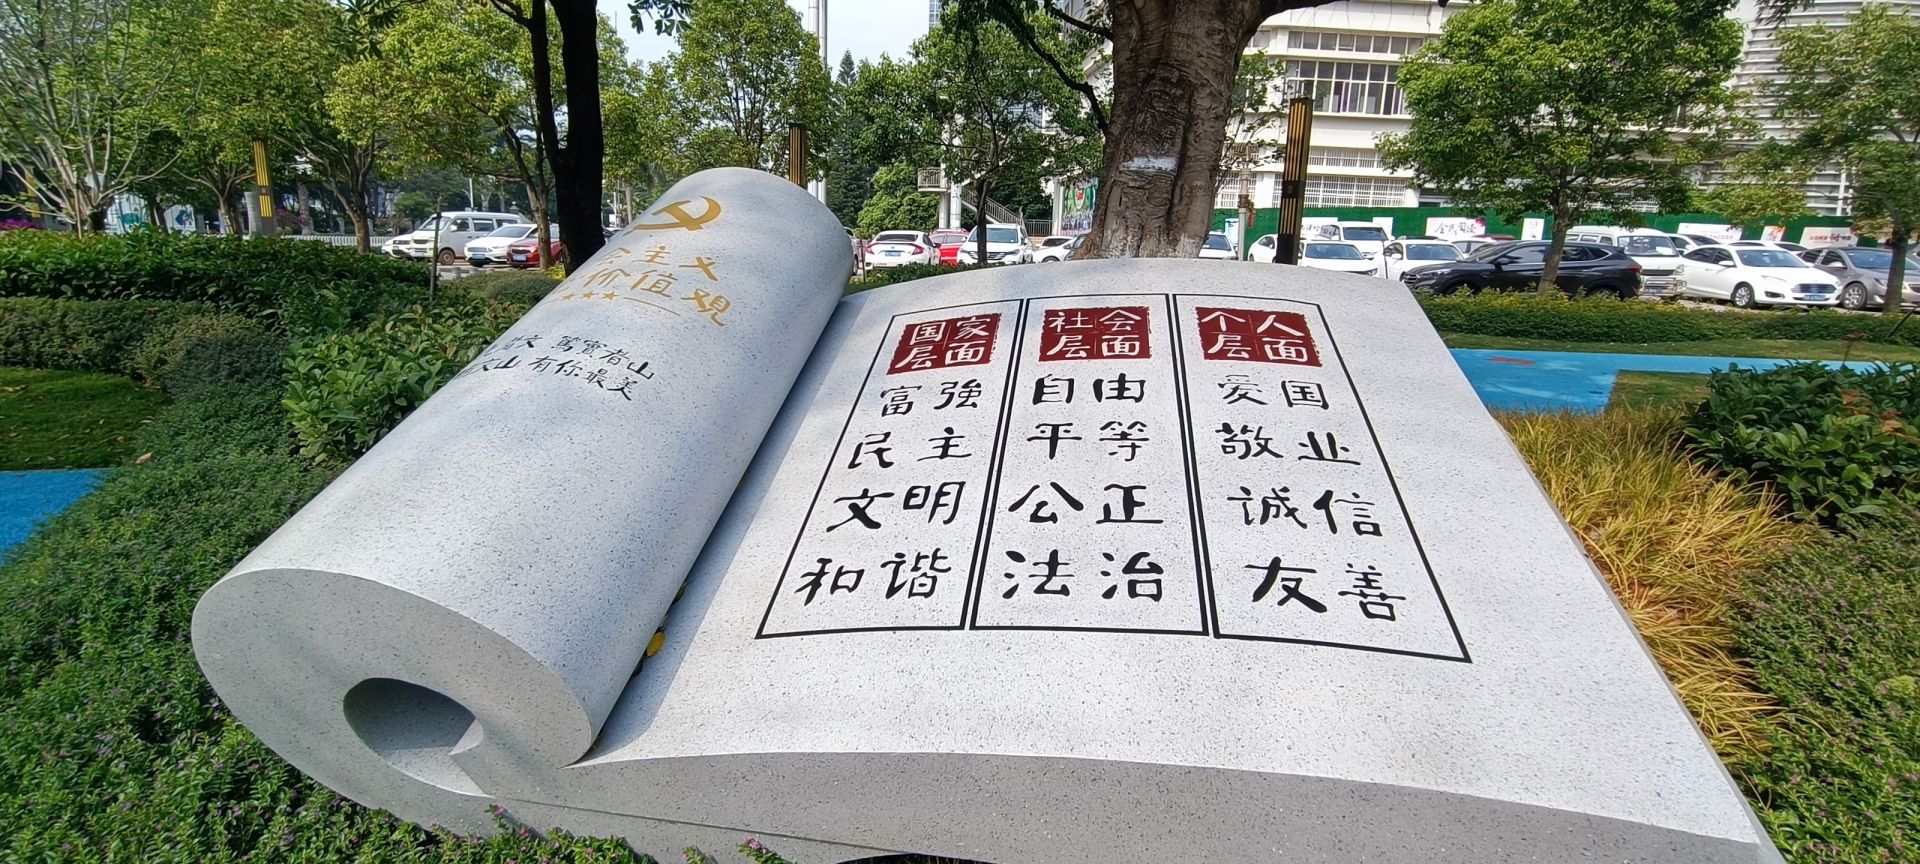 会主义
价值观
篤實者山
山 有你最美
国家
层面
富强
民主
文明
和谐
社会
层面
自由
平等
公正
法治
个人
层面
爱国
敬业
诚信
友善